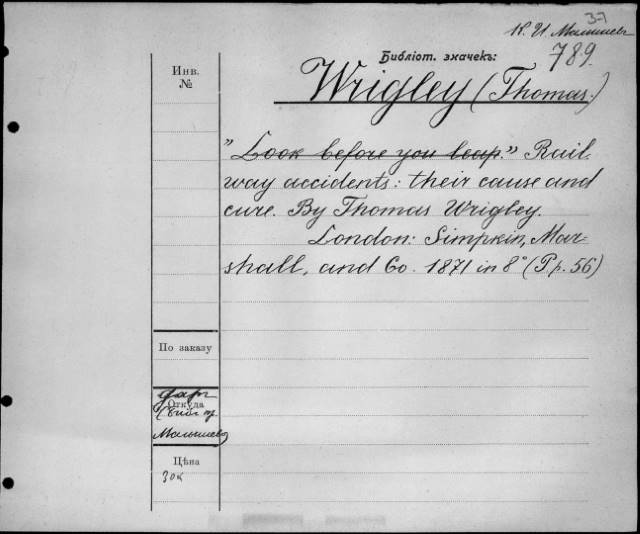 37
К. И. Малышев
Библіот. значекъ:
789.
Инв.
№
Wrigley (Thomas.)
"Look before you leap." Rail-
way accidents: their cause and
cure. By Thomas Wrigley.
London: Simpkin, Mar-
shall, and Co. 1871 in 8° (P.p. 56)
По заказу
даръ
Откуда
Малышева
Цѣна
30к